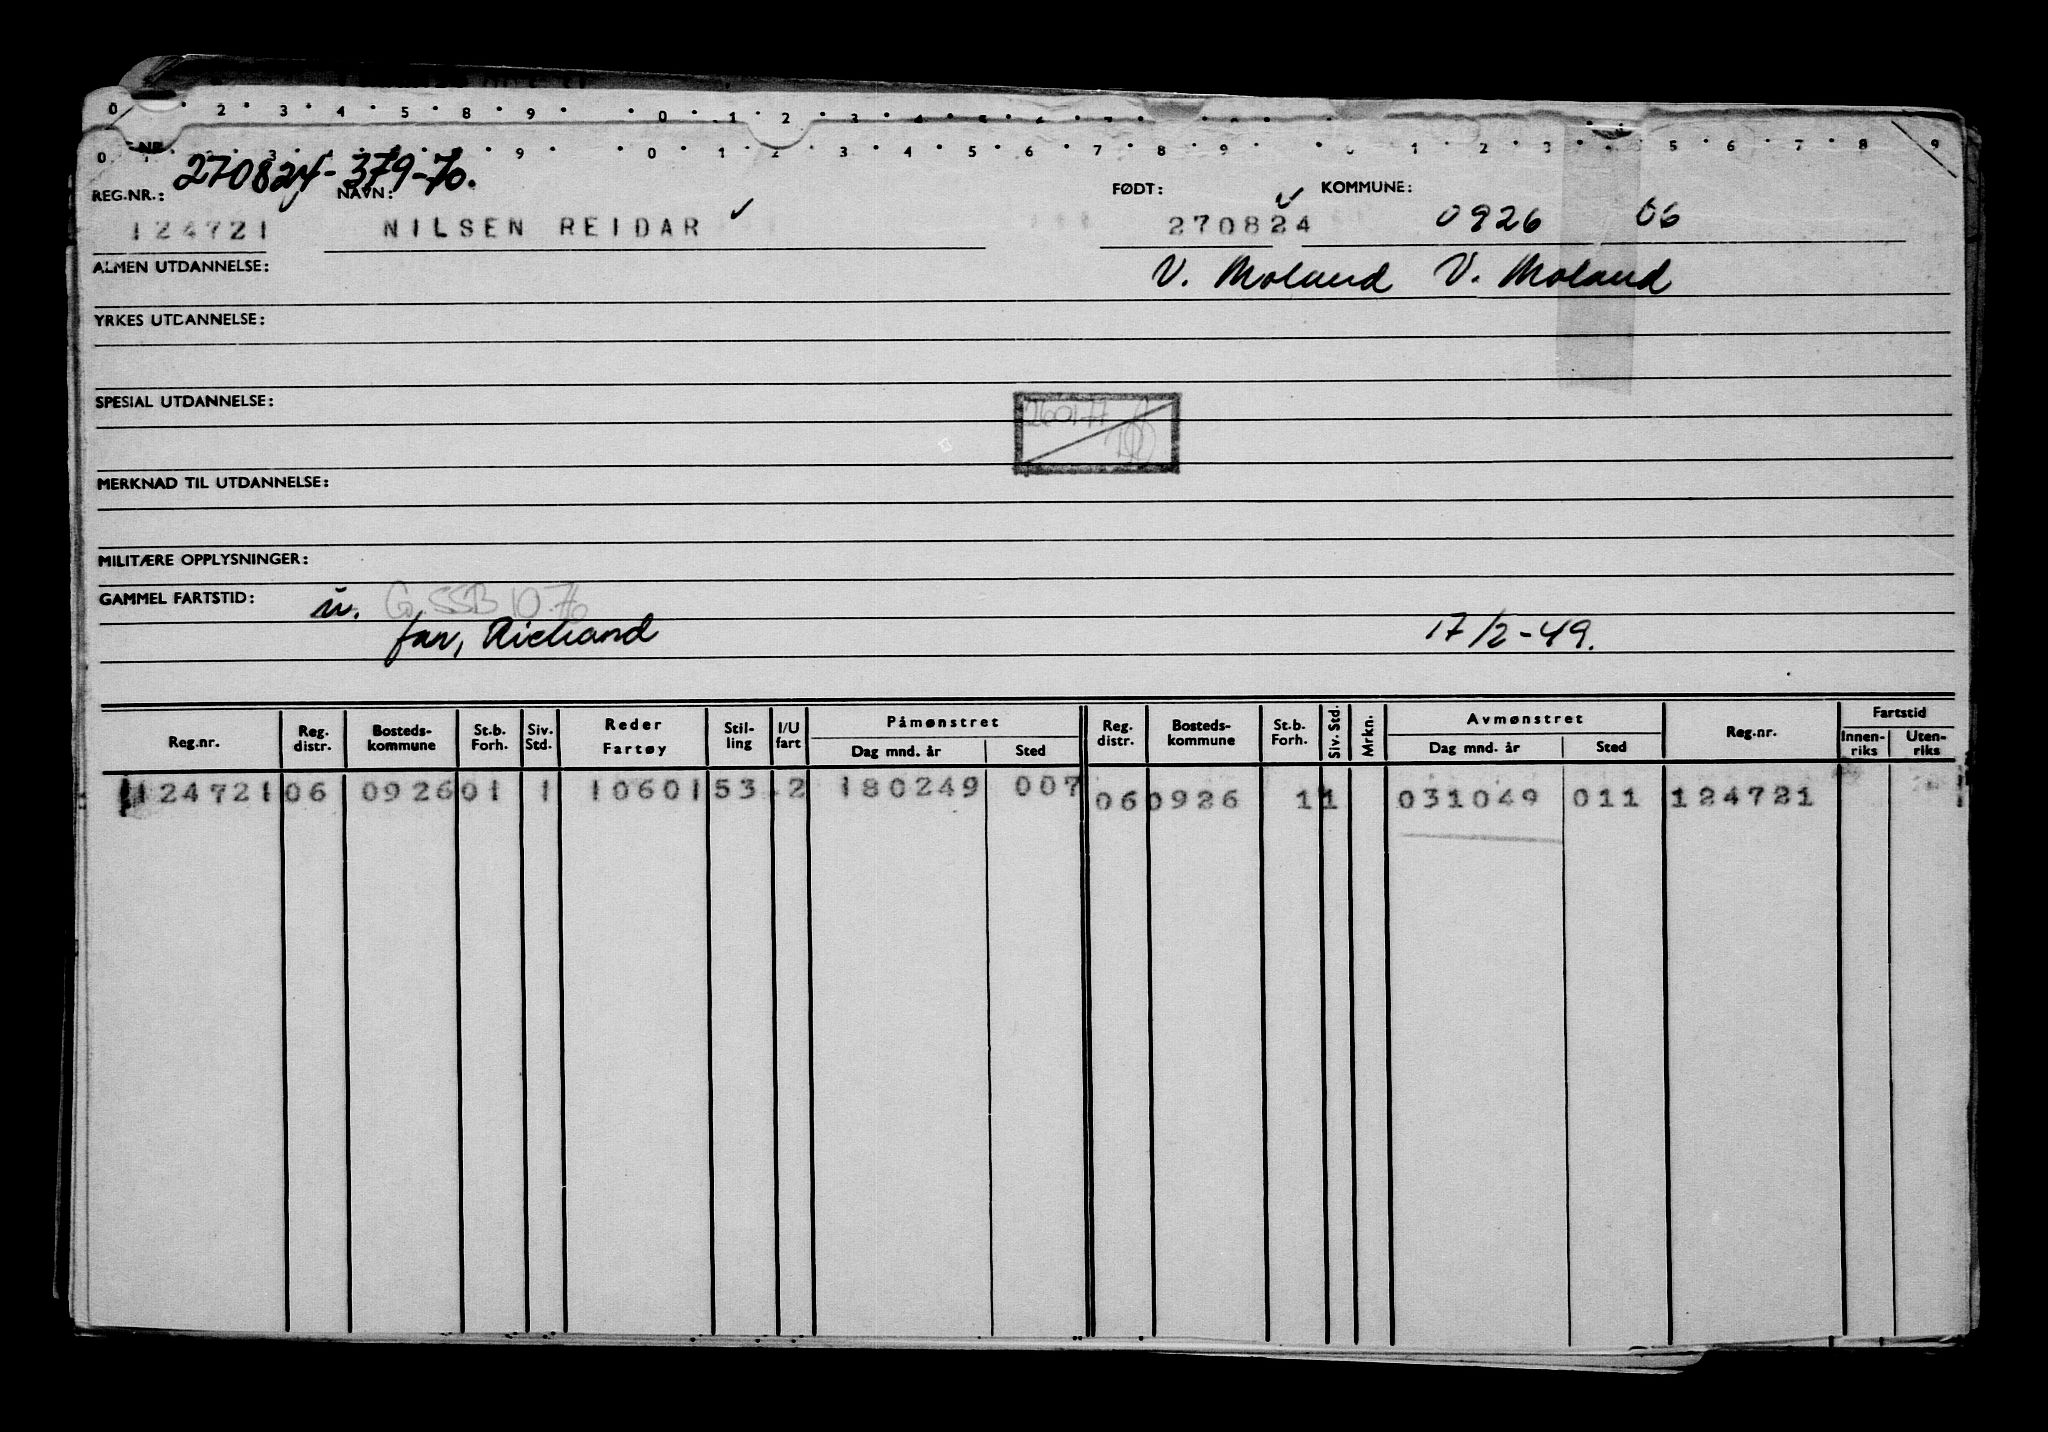 0 2 3 4 5 8 9 0 1 2 3 4 5 6 7
0 1 2 3 9 0 1 2 3 4 5 6 7 8 9 1 2 3 5 6 7 8 9
270824-379-70.
REG.NR.: NAVN: FØDT: KOMMUNE:
124721 NILSEN REIDAR ✓ 270824 ✓ 0926 06
ALMEN UTDANNELSE: V. Moland V. Moland
YRKES UTDANNELSE:
SPESIAL UTDANNELSE:
260177
MERKNAD TIL UTDANNELSE:
MILITÆRE OPPLYSNINGER:
GAMMEL FARTSTID: u. G. SSB 10.76
far, Richard 17/2-49.
Reg.nr. Reg. distr. Bosteds-kommune St.b. Forh. Siv. Std. Reder Fartøy Stil-ling I/U fart Påmønstret Dag mnd. år Sted Reg. distr. Bosteds-kommune St.b. Forh. Siv. Std. Mrkn. Avmønstret Dag mnd. år Sted Reg.nr. Fartstid Innen-riks Uten-riks
124721 06 0926 01 1 10601 53 2 180249 007 06 0926 1 1 031049 011 124721